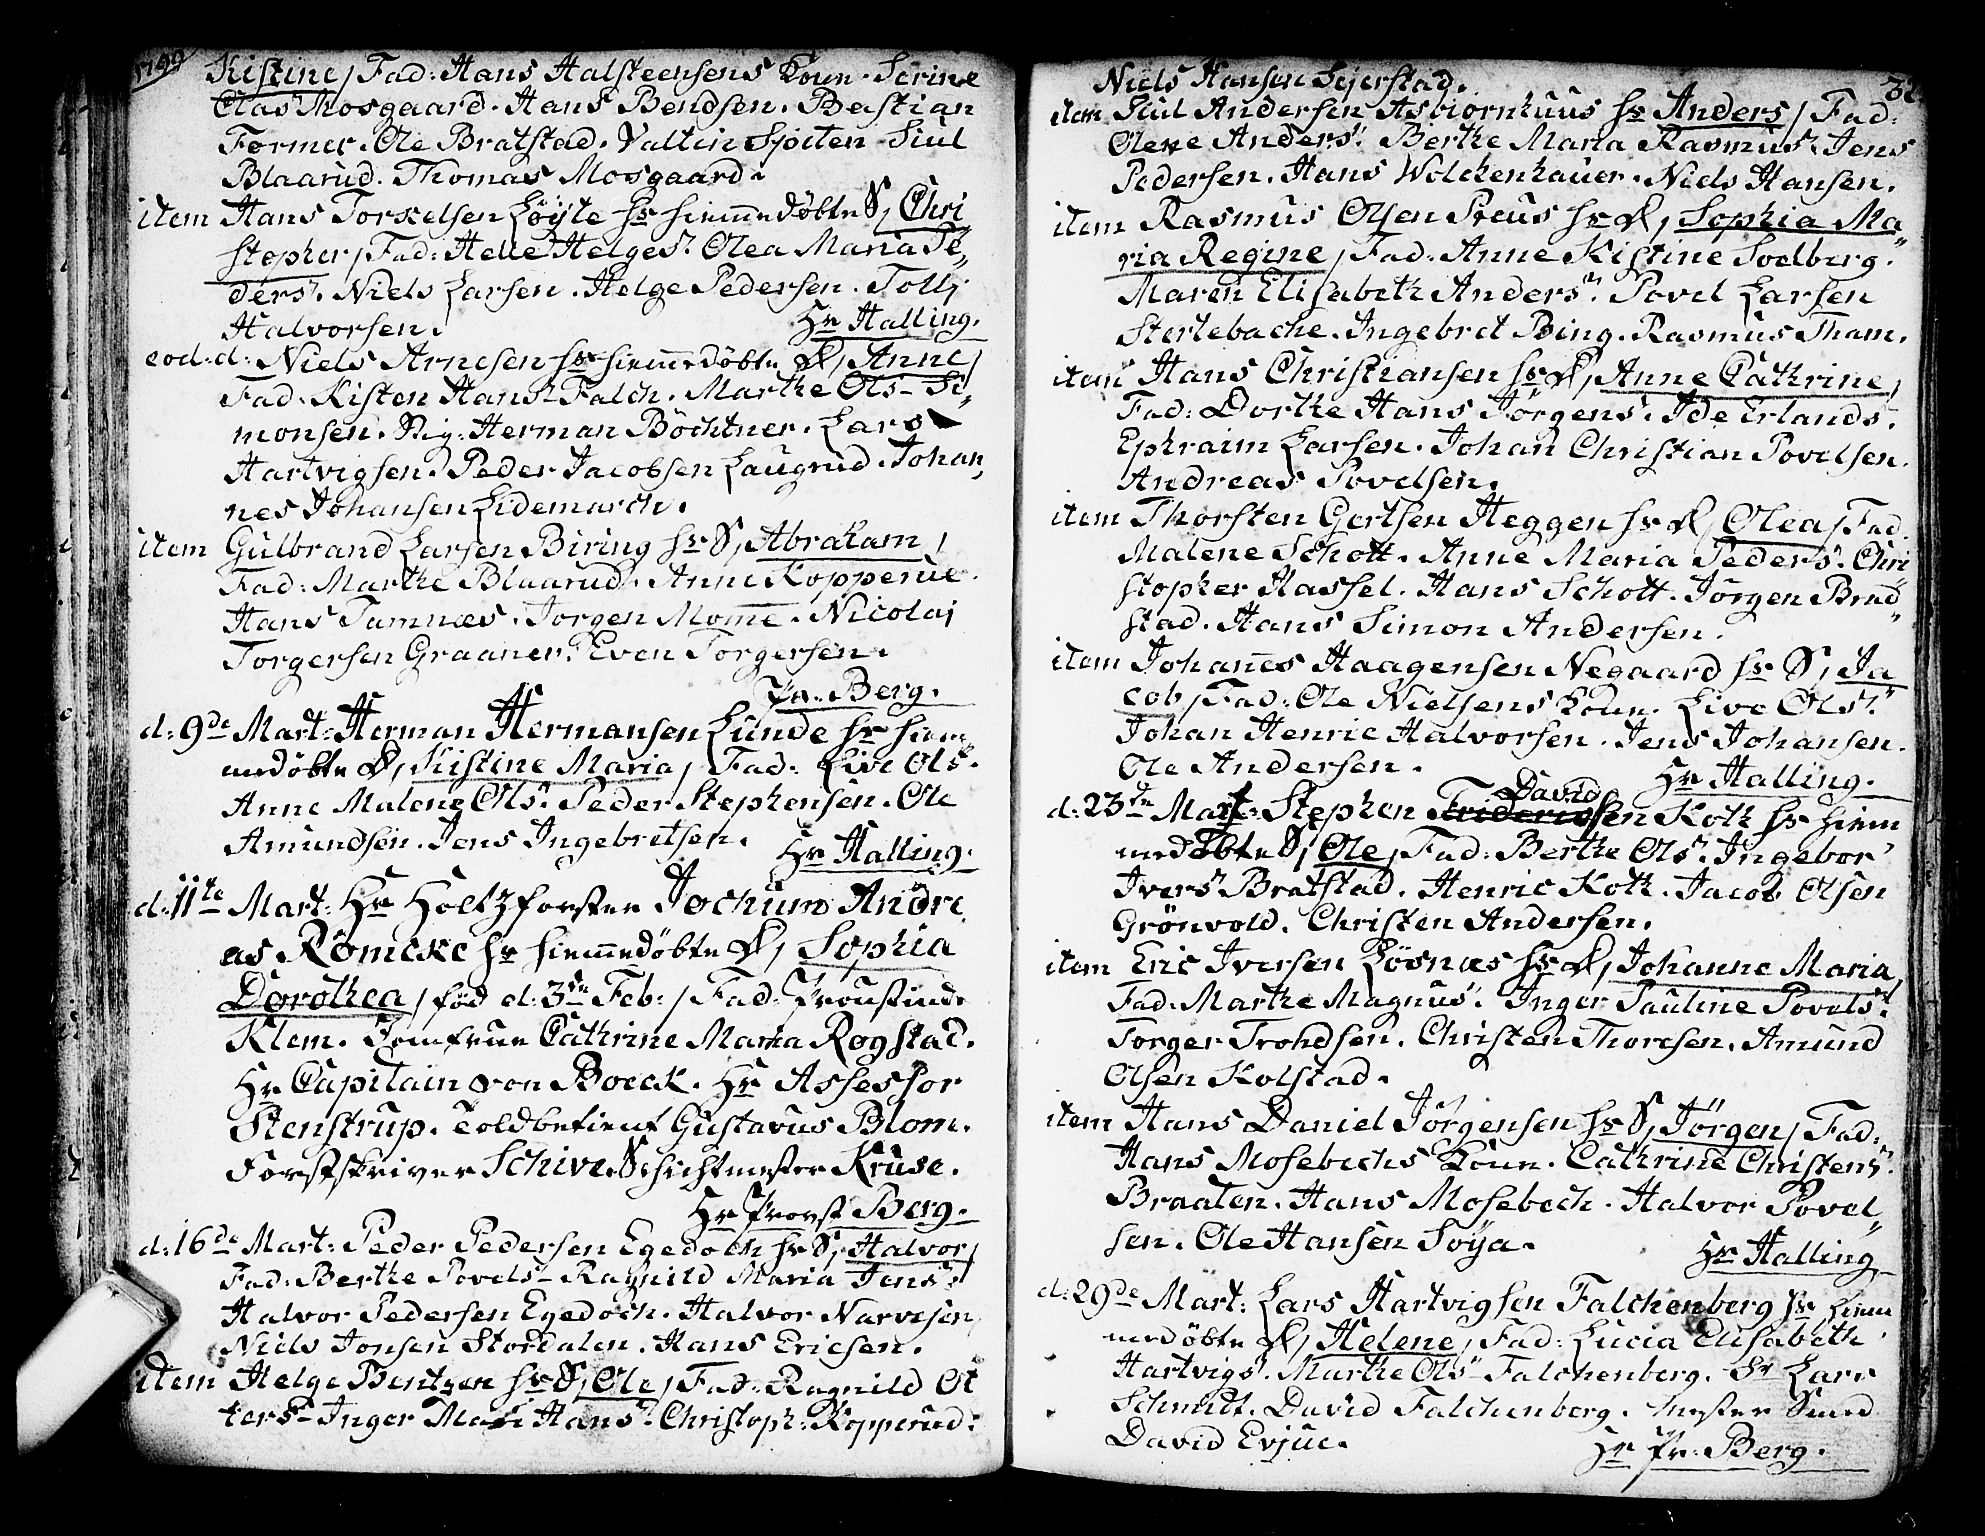 1799
Kistine / Fad: Hans Halsteensens Koun. Serine
Olas Mosgaard. Hans Bendsen. Bastian
Former. Ole Bratstad. Valtin Spiten Siul
Blaarud. Thomas Mosgaard.
item Hans Torkelsen Løyte hr hiemmedøbte S, Chri
stopher / Fad: Helle Helges. Olea Maria Pe„
ders. Niels Larsen. Helge Pedersen. Tollj
Halvorsen.
Hr Halling.
eod: d: Niels Arnesen hr hiemmedøbte D, Anne /
Fad: Kisten Hans Falch. Marthe Ols Si„
monsen. Stig: Herman Böchtner. Lars
Hartvigsen. Peder Jacobsen Laugrud. Johan„
nes Johansen Lidemarch.
item Gulbrand Larsen Biring hr S, Abraham /
Fad: Marthe Blaarud. Anne Kopperue.
Hans Tamnæs. Jorgen Mome. Nicolaj
Torgersen Graaner. Even Torgersen.
Pr: Berg.
d: 9de Mart: Herman Hermansen Lunde hr hiem
medøbte D, Kistine Maria / Fad: Live Ols.
Anne Malene Ols. Peder Stephensen. Ole
Amundsen. Jens Ingebretsen.
Hr Halling.
d: 11te Mart: Hr Holtzforster Jochum Andre
as Römcke hr hiemmedøbte D, Sophia
Dorothea / fød d: 3die Feb: / Fad: Proustinde
Klem. Jomfrue Cathrine Maria Rogstad.
Hr Capitain von Boeck. Hr Assessor
Stenstrup. Toldbetient Gustavus Blom.
Forstskriver Schive. Schichtmester Kruse.
Hr Provst Berg.
d: 16de Mart: Peder Pedersen Egedoch hr S, Halvor /
Fad: Berthe Povels. Ragnild Maria Jens.
Halvor Pedersen Egedoch. Halvor Narvesen,
Niels Jonsen Stordalen. Hans Ericsen.
item Helge Bentzen hr S, Ole / Fad: Ragnild Ot
ters. Inger Mari Hans. Christoph: Kopperud:
Niels Hansen Sejerstad.
item Siul Andersen Asbiornhuus hr Anders / Fad:
Olene Anders. Berthe Maria Rasmus. Jens
Pedersen. Hans Wolckenhauer. Niels Hansen.
item Rasmus Olsen Preus hr D, Sophia Ma„
ria Regine / Fad: Anne Kistine Soelberg.
Maren Elisabeth Anders. Povel Larsen
Stertebache. Ingebret Bing. Rasmus Tham.
item Hans Christiansen hr D, Anne Cathrine /
Fad: Dorthe Hans Jørgens. Ide Erlands.
Ephraim Larsen. Johan Christian Povelsen.
Andreas Povelsen.
item Thorsten Gertsen Heggen hr D, Olea / Fad
Malene Schott. Anne Maria Peders. Chri
stopher Hassel. Hans Schott. Jörgen Brud„
stad. Hans Simon Andersen.
item Johannes Haagensen Negaard hr S, Ja
cob / Fad: Ole Nielsens Koun. Live Ols.
Johan Henric Halvorsen. Jens Johansen.
Ole Andersen.
Hr Halling.
David
d: 23de Mart: Stephen Fridericsen Koth hr hiem
medøbte S, Ole / Fad: Berthe Ols. Ingebor
Ivers Bratstad. Henric Koth. Jacob Olsen
Grönvold. Christen Andersen.
item Eric Iversen Løsnæs hr D, Johanne Maria /
Fad: Marthe Magnus. Inger Pauline Povels.
Torger Trohdsen. Christen Thoresen. Amund
Olsen Kolstad.
item Hans Daniel Jörgensen hr S, Jørgen / Fad:
Hans Mosebechs Koun. Cathrine Christens.
Braaten. Hans Mosebech. Halvor Povel„
sen. Ole Hansen Soya.
Hr Halling
d: 29de Mart: Lars Hartvigsen Falchenberg hr hiem
medøbte D, Helene / Fad: Lucia Elisabeth
Hartvigs. Marthe Ols Falchenberg. Sr Lars
Schmidt. David Falchenberg. Mester Smed
David Evjue.
Hr Pr: Berg.